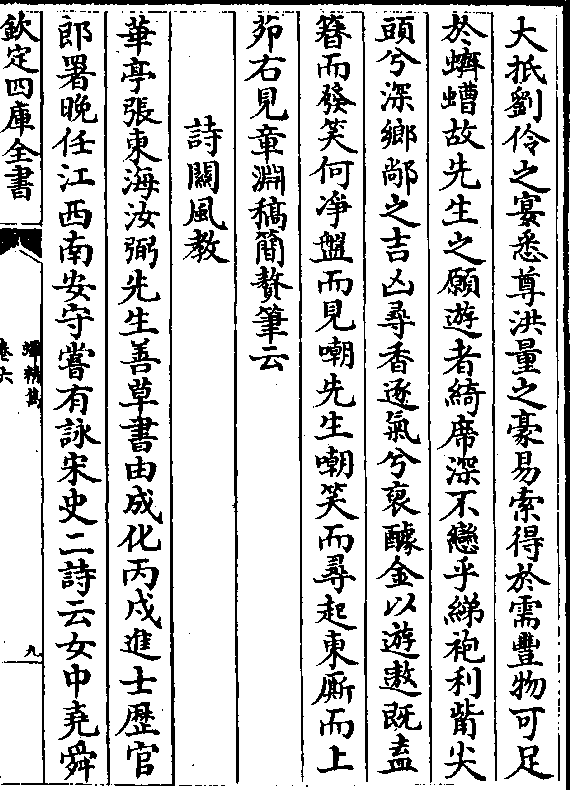 大抵劉伶之宴悉尊洪量之豪易索得於需豐物可足
於蠐螬故先生之願遊者綺席深不戀乎綈袍利觜尖
頭兮深鄉鄗之吉凶尋香逐氣兮裒醵金以遊遨既盍
簪而發笑何凈盤而見嘲先生嘲笑而尋起東厮而上
茆右見章淵稿簡贅筆云
詩關風教
華亭張東海汝弼先生善草書由成化丙戌進士歴官
郎署晚任江西南安守嘗有詠宋史二詩云女中堯舜
欽定四庫全書
蟫精雋
卷六
九